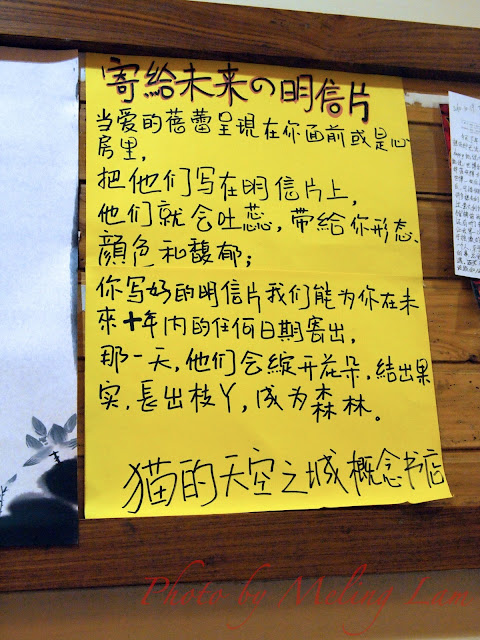 寄給未来の明信片
当爱的蓓蕾呈現在你面前或是心
房里，
把他们写在明信片上，
他们就会吐蕊，带給你形态、
顔色和馥郁；
你写好的明信片我们能为你在未
來十年内的任何日期寄出，
那一天，他们会綻开花朵，結出果
实，長出枝丫，成为森林。
猫的天空之城概念书店
Photo by Meling Lam